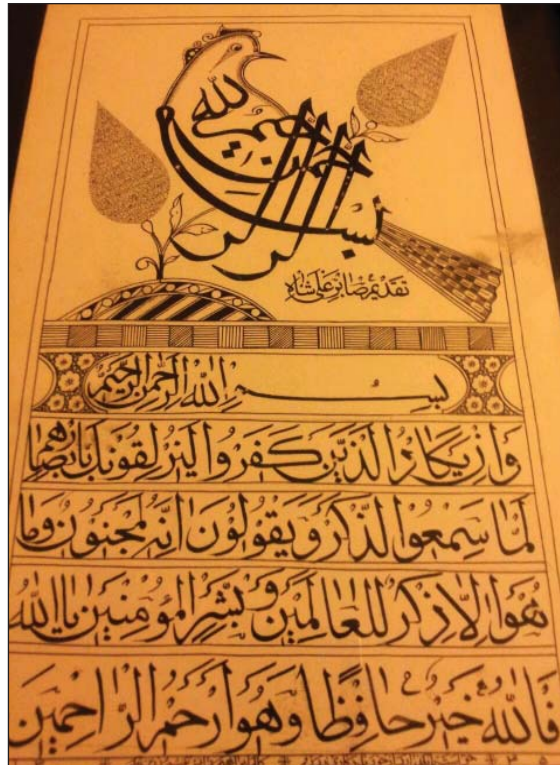 بسم الله الرحمن الرحیم
تقدیم صابر علی شاه
بِسْمِ اللهِ الرَّحْمٰنِ الرَّحِیْمِ
وَاِنْ یَکَادُ الَّذِیْنَ کَفَرُوا لَیُزْلِقُونَکَ بِاَبْصَارِهِمْ
لَمَّا سَمِعُوا الذِّکْرَ وَیَقُولُونَ اِنَّهُ لَمَجْنُونٌ وَمَا
هُوَ اِلَّا ذِکْرٌ لِلْعَالَمِیْنَ وَبَشِّرِ الْمُؤْمِنِیْنَ یَا اَللهُ
فَاللهُ خَیْرٌ حَافِظًا وَهُوَ اَرْحَمُ الرَّاحِمِیْنَ